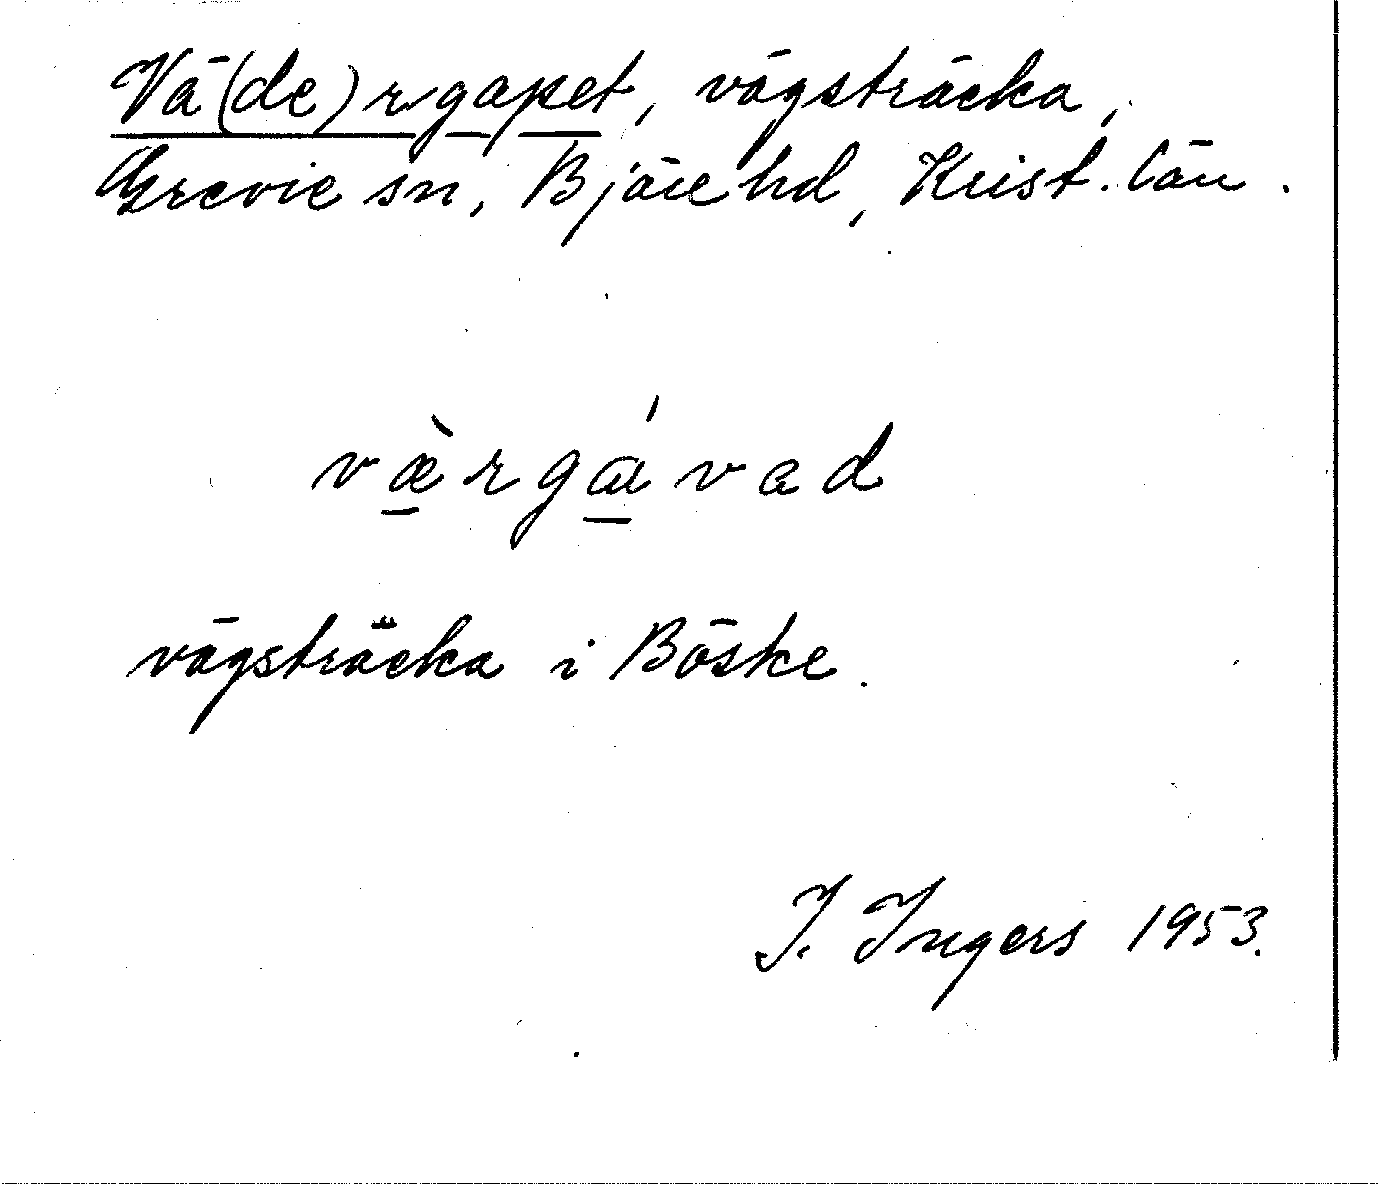 Vä(de)rgapet, vägsträcka,
Grevie sn, Bjäre hd, Krist. län.
væ̀rgávad
vägsträcka i Böske.
I. Ingers 1953.